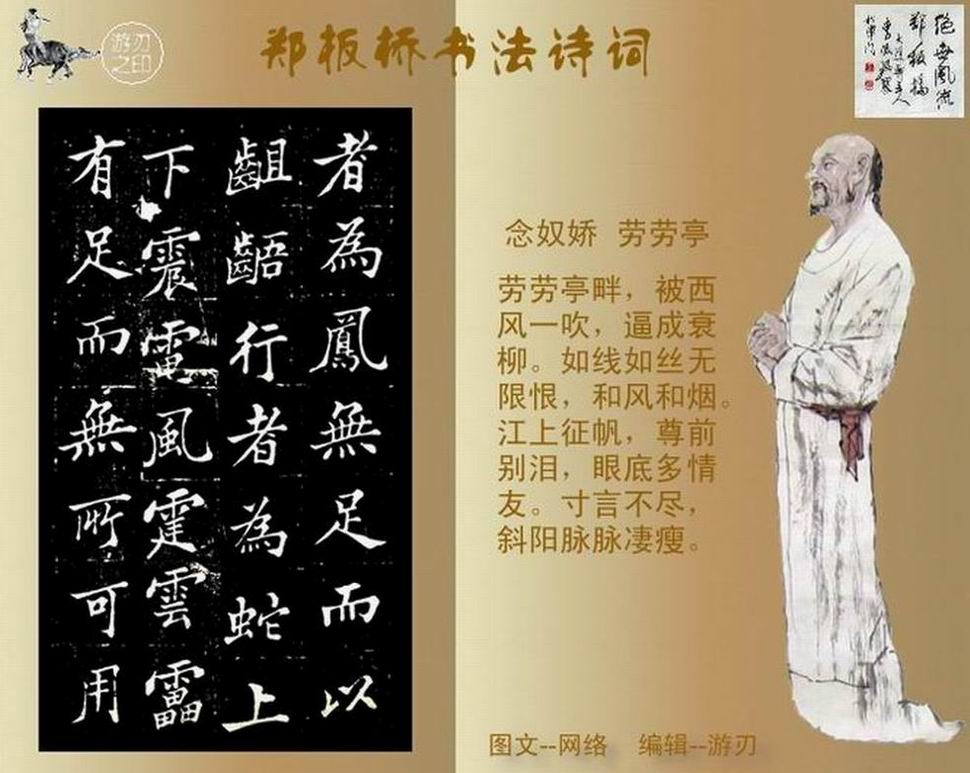 游刃
之印
郑板桥书法诗词
絕世風流
郑板橋
者為鳳無足而以
齟齬行者為蛇上
下震電風霆雲靁
有足而無所可用
念奴娇 劳劳亭
劳劳亭畔，被西
风一吹，逼成衰
柳。如线如丝无
限恨，和风和烟。
江上征帆，尊前
别泪，眼底多情
友。寸言不尽，
斜阳脉脉凄瘦。
图文--网络 编辑--游刃